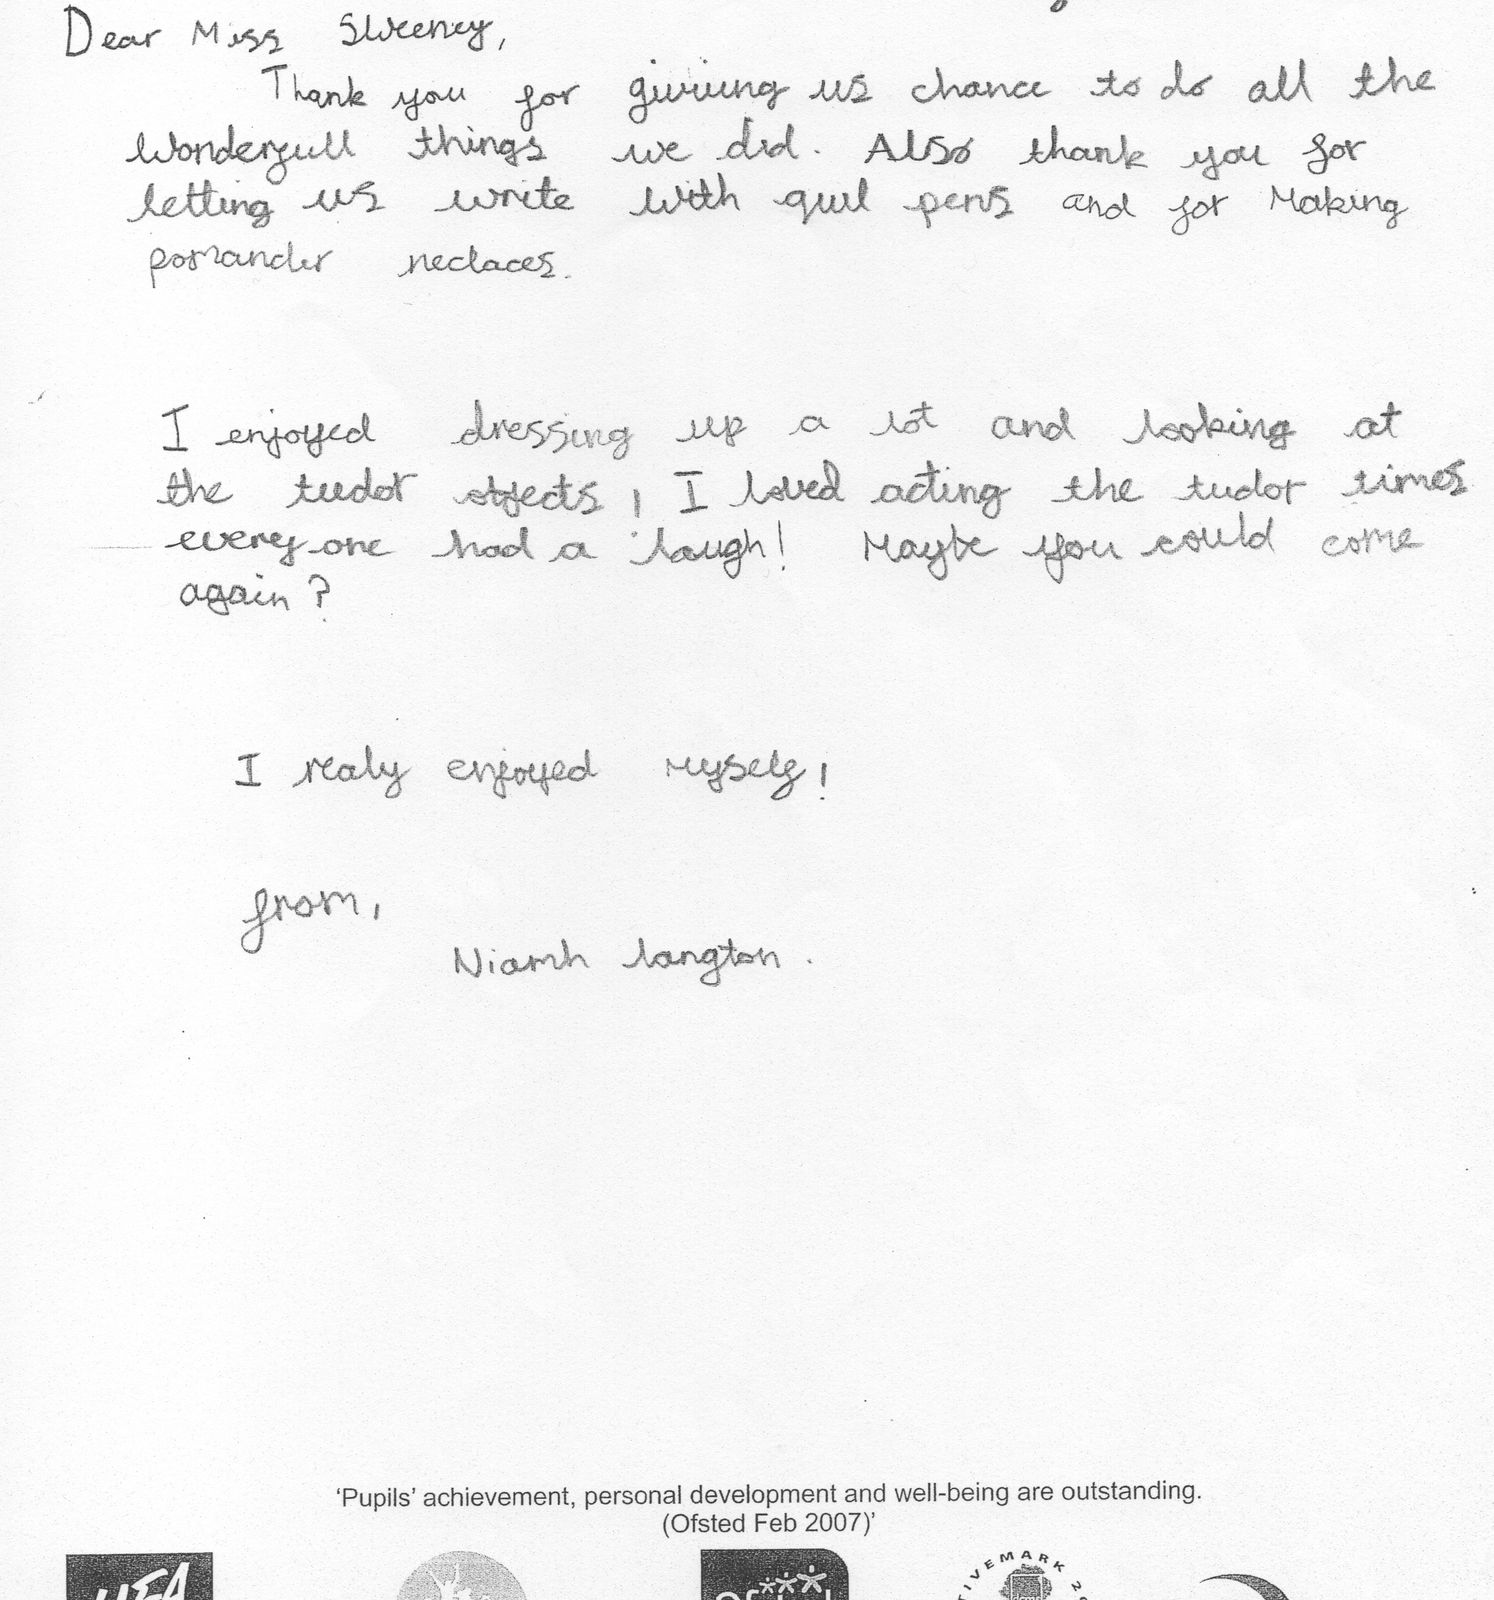 Dear Miss Sweeney,
Thank you for giviung us chance to do all the
wonderfull things we did. Also thank you for
letting us write with quil pens and for Making
pomander neclaces.
I enjoyed dressing up a lot and looking at
the tudor objects, I loved acting the tudor times
everyone had a laugh! Maybe you could come
again?
I realy enjoyed Myself!
from,
Niamh langton.
'Pupils' achievement, personal development and well-being are outstanding.
(Ofsted Feb 2007)'
Ofsted